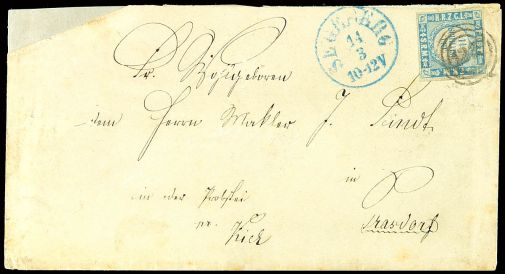 SEGEBERG
14
3
10-12V
H.R.Z.G.L.
POST
Sr. Wohlgeboren
dem Herrn Makler J. Lindt
in
Prasdorf
in der Probstei
pr. Kiel